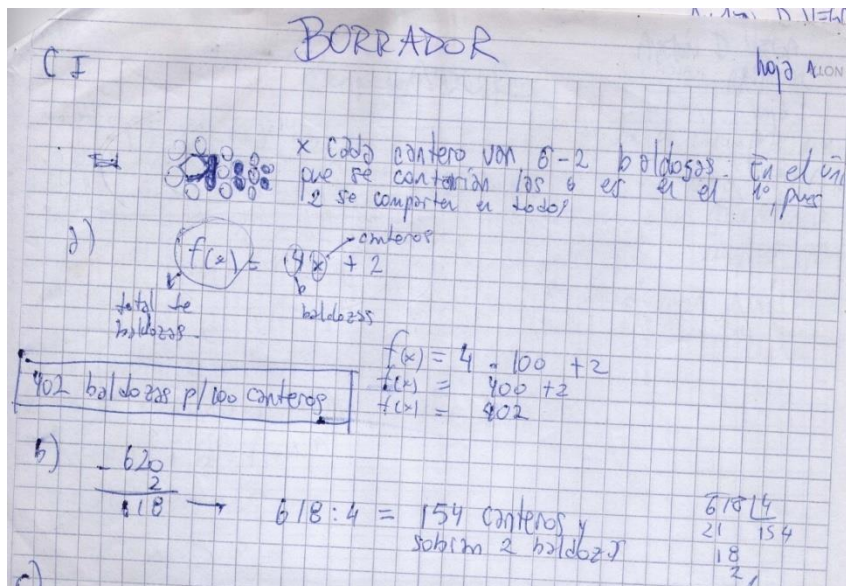 BORRADOR
C I
hoja 1
x cada cantero van 6-2 baldosas. En el
que se contarían las 6 es en el 1º, pues
2 se comparten en todos
a)
f(x) = 4x + 2
canteros
total de
baldozas
baldozas
f(x) = 4 . 100 + 2
f(x) = 400 + 2
f(x) = 402
402 baldozas p/ 100 canteros
b)
- 620
2
618 → 618 : 4 = 154 canteros y
sobran 2 baldozas
618 | 4
21 154
18
2
c)